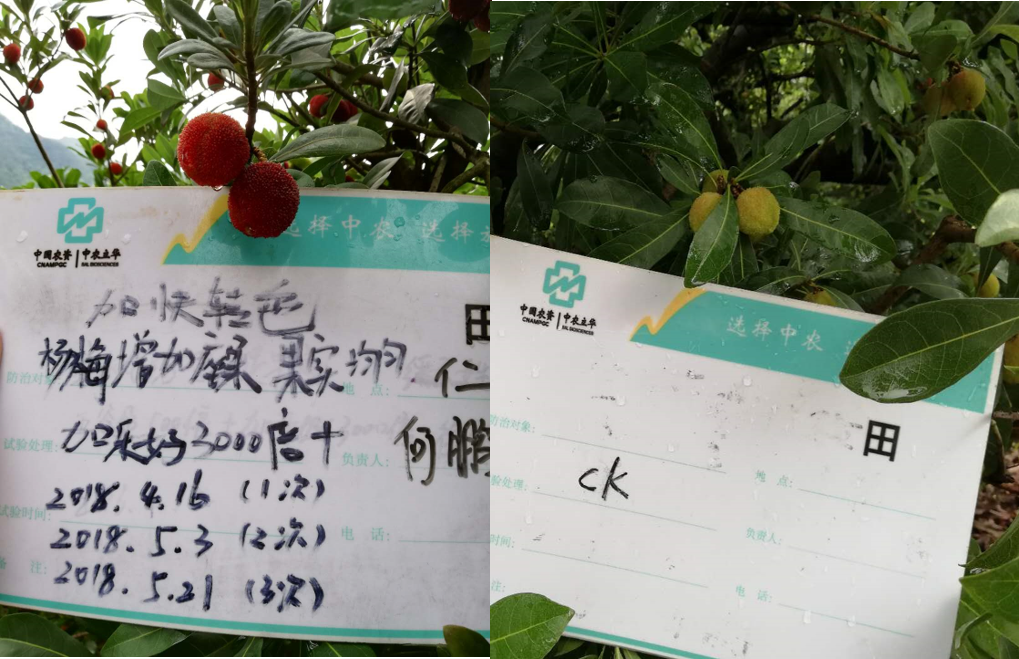 中国农资 中农立华
CNAMPGC SAL BIOSCIENCES
选择中农 选择
加快转色
田
杨梅增加座果 果实均匀
仁
防治对象
地 点:
试验处理:
加采好3000倍+
负责人:
何鹏
2018.4.16 (1次)
试验时间:
2018.5.3 (2次)
电 话:
注:
2018.5.21 (3次)
中国农资 中农立华
CNAMPGC SAL BIOSCIENCES
选择中农
田
防治对象:
地 点:
验处理:
CK
负责人:
时间:
电 话:
注: